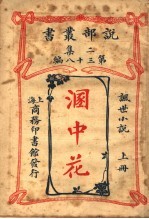 說部叢書
二集
第三十八編
諷世小說 上冊
溷中花
上海商務印書館發行